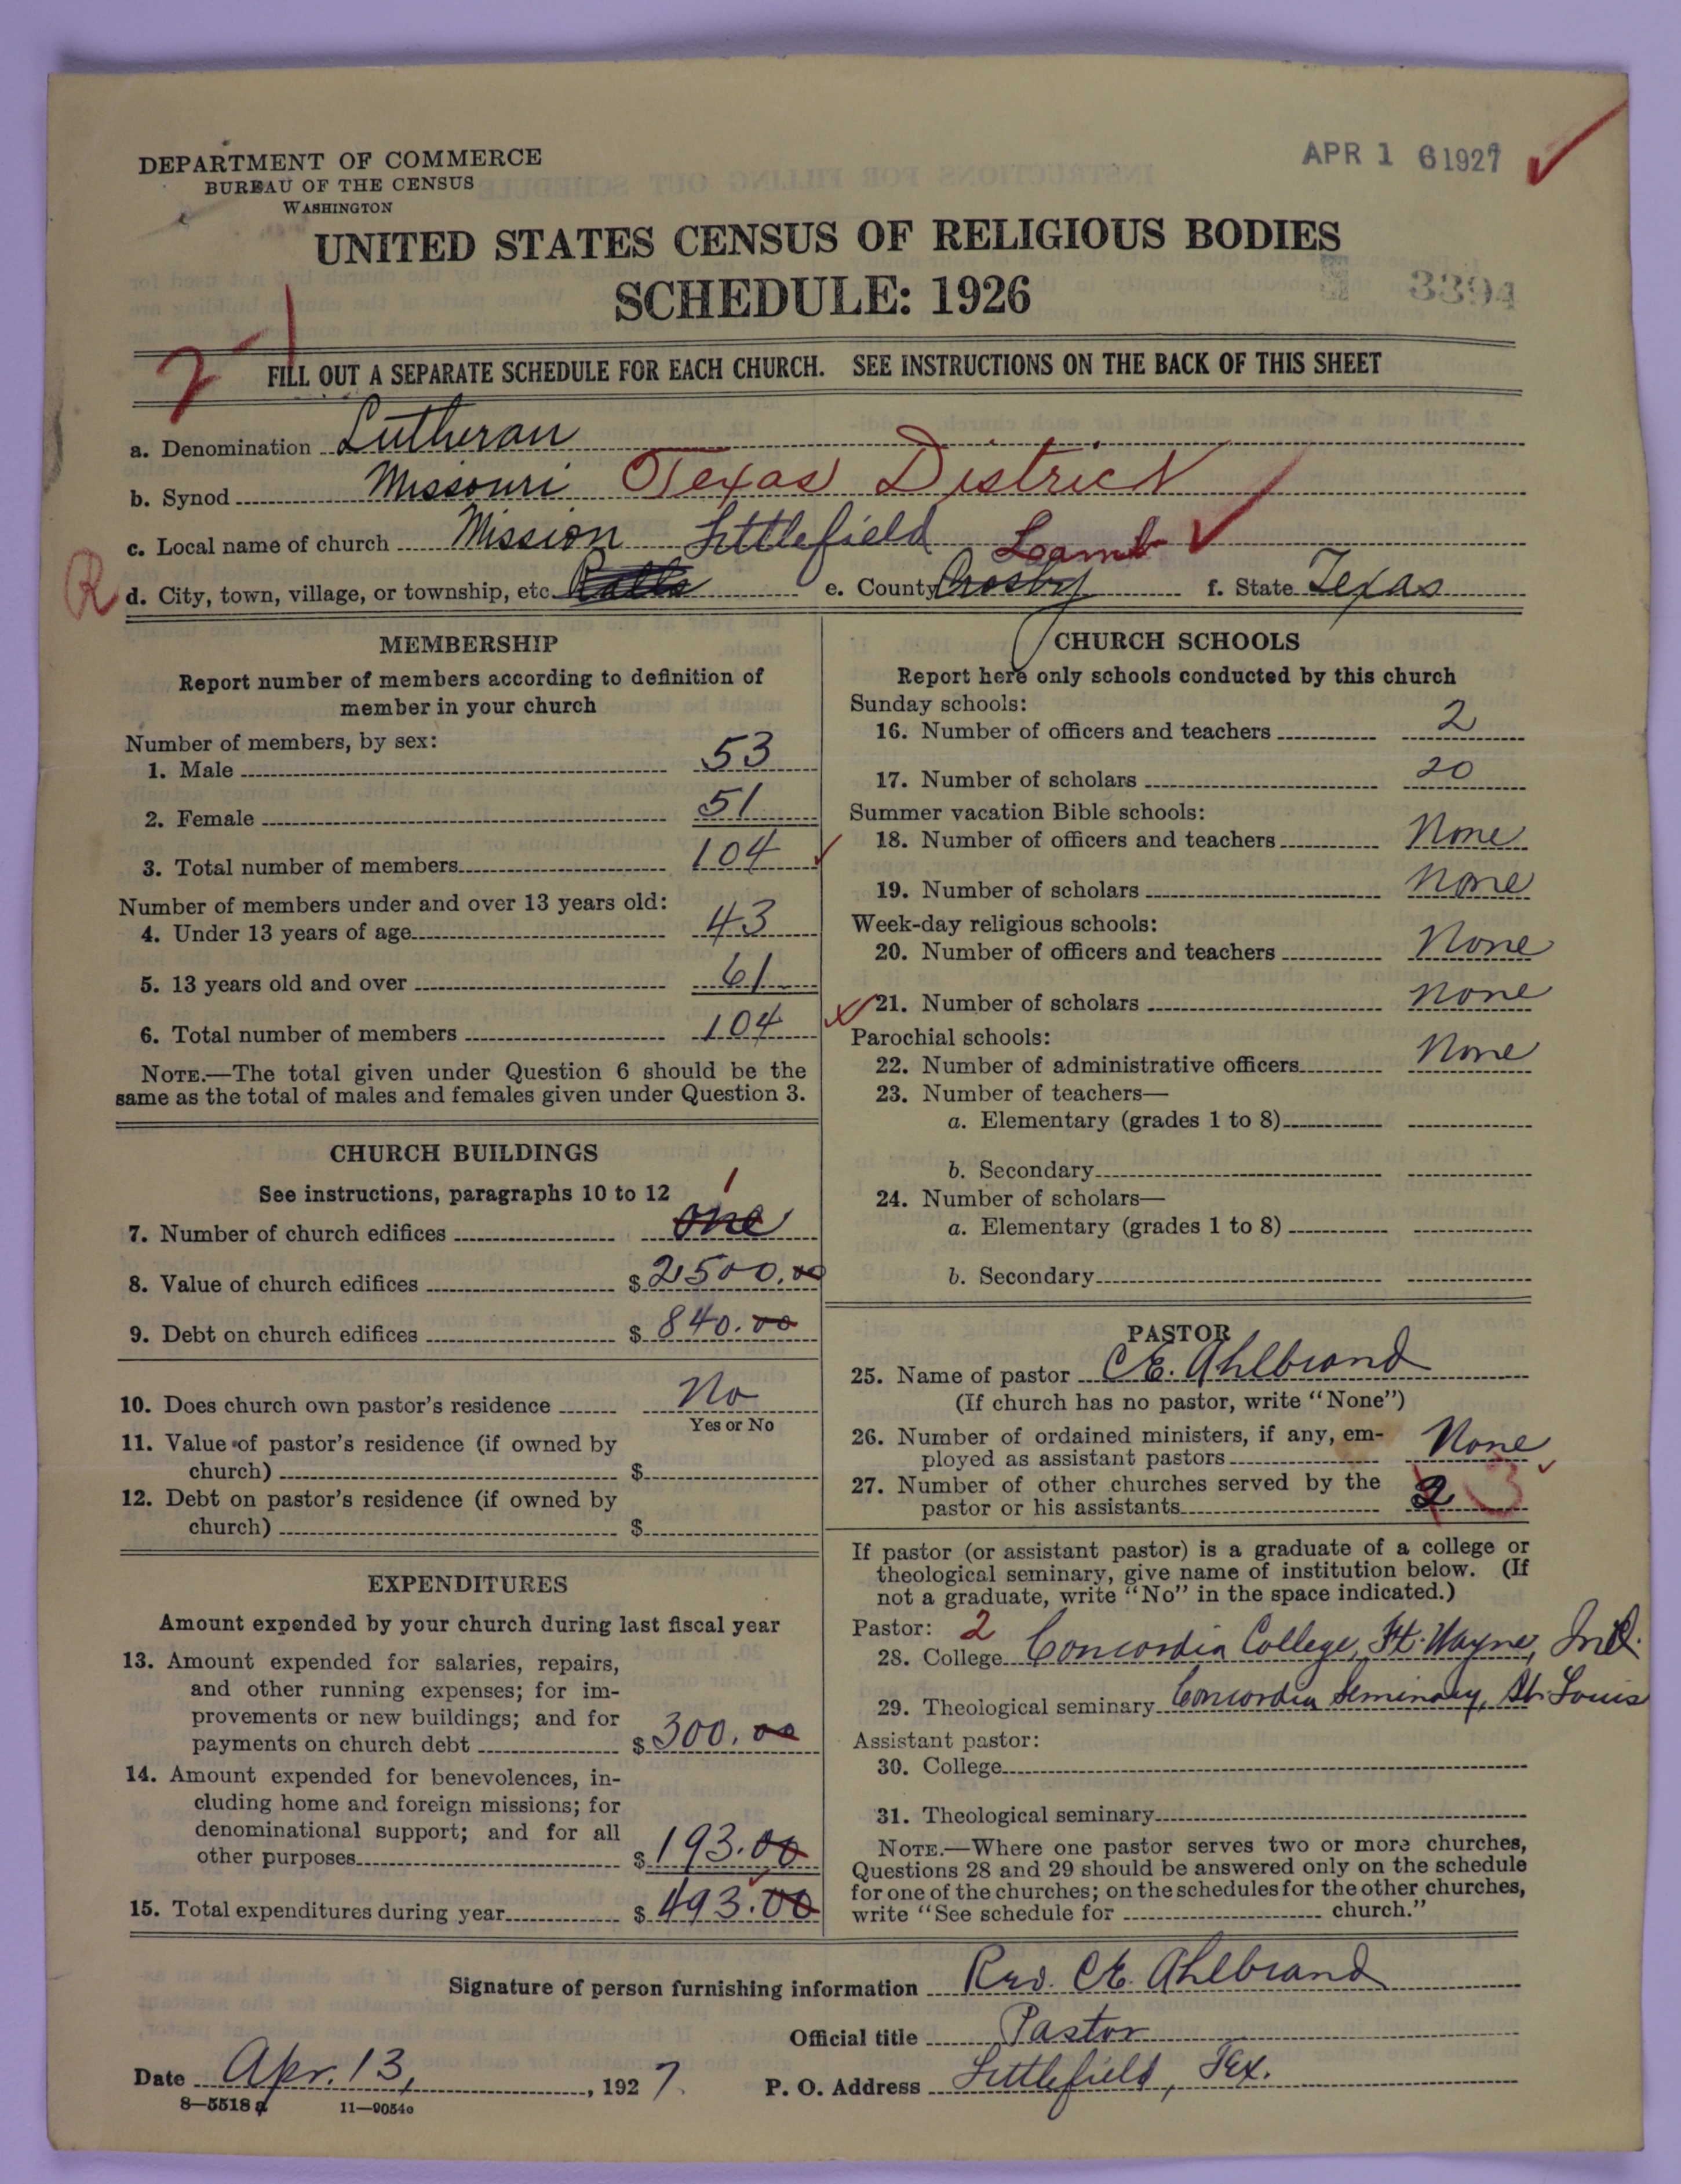 DEPARTMENT OF COMMERCE
BUREAU OF THE CENSUS
WASHINGTON
APR 16 1927
UNITED STATES CENSUS OF RELIGIOUS BODIES
SCHEDULE: 1926
3394
FILL OUT A SEPARATE SCHEDULE FOR EACH CHURCH. SEE INSTRUCTIONS ON THE BACK OF THIS SHEET
a. Denomination Lutheran
b. Synod Missouri Texas District
c. Local name of church Mission Littlefield Lamb
R d. City, town, village, or township, etc. Ralls e. County Crosby f. State Texas
MEMBERSHIP
Report number of members according to definition of
member in your church
Number of members, by sex:
1. Male 53
2. Female 51
3. Total number of members 104
Number of members under and over 13 years old:
4. Under 13 years of age 43
5. 13 years old and over 61
6. Total number of members 104
NOTE.—The total given under Question 6 should be the
same as the total of males and females given under Question 3.
CHURCH BUILDINGS
See instructions, paragraphs 10 to 12 1
7. Number of church edifices one
8. Value of church edifices $ 2500.00
9. Debt on church edifices $ 840.00
10. Does church own pastor's residence No
Yes or No
11. Value of pastor's residence (if owned by
church) $
12. Debt on pastor's residence (if owned by
church) $
EXPENDITURES
Amount expended by your church during last fiscal year
13. Amount expended for salaries, repairs,
and other running expenses; for im-
provements or new buildings; and for
payments on church debt $ 300.00
14. Amount expended for benevolences, in-
cluding home and foreign missions; for
denominational support; and for all
other purposes $ 193.00
15. Total expenditures during year $ 493.00
CHURCH SCHOOLS
Report here only schools conducted by this church
Sunday schools:
16. Number of officers and teachers 2
17. Number of scholars 20
Summer vacation Bible schools:
18. Number of officers and teachers None
19. Number of scholars None
Week-day religious schools:
20. Number of officers and teachers None
21. Number of scholars None
Parochial schools:
22. Number of administrative officers None
23. Number of teachers—
a. Elementary (grades 1 to 8)
b. Secondary
24. Number of scholars—
a. Elementary (grades 1 to 8)
b. Secondary
PASTOR
25. Name of pastor C.E. Ahlbrand
(If church has no pastor, write "None")
26. Number of ordained ministers, if any, em-
ployed as assistant pastors None
27. Number of other churches served by the
pastor or his assistants 2 3
If pastor (or assistant pastor) is a graduate of a college or
theological seminary, give name of institution below. (If
not a graduate, write "No" in the space indicated.)
Pastor: 2
28. College Concordia College, Ft. Wayne, Ind.
29. Theological seminary Concordia Seminary, St. Louis
Assistant pastor:
30. College
31. Theological seminary
NOTE.—Where one pastor serves two or more churches,
Questions 28 and 29 should be answered only on the schedule
for one of the churches; on the schedules for the other churches,
write "See schedule for church."
Signature of person furnishing information Rev. C.E. Ahlbrand
Official title Pastor
Date Apr. 13, , 1927.
P. O. Address Littlefield, Tex.
8—5518 a 11—9054c